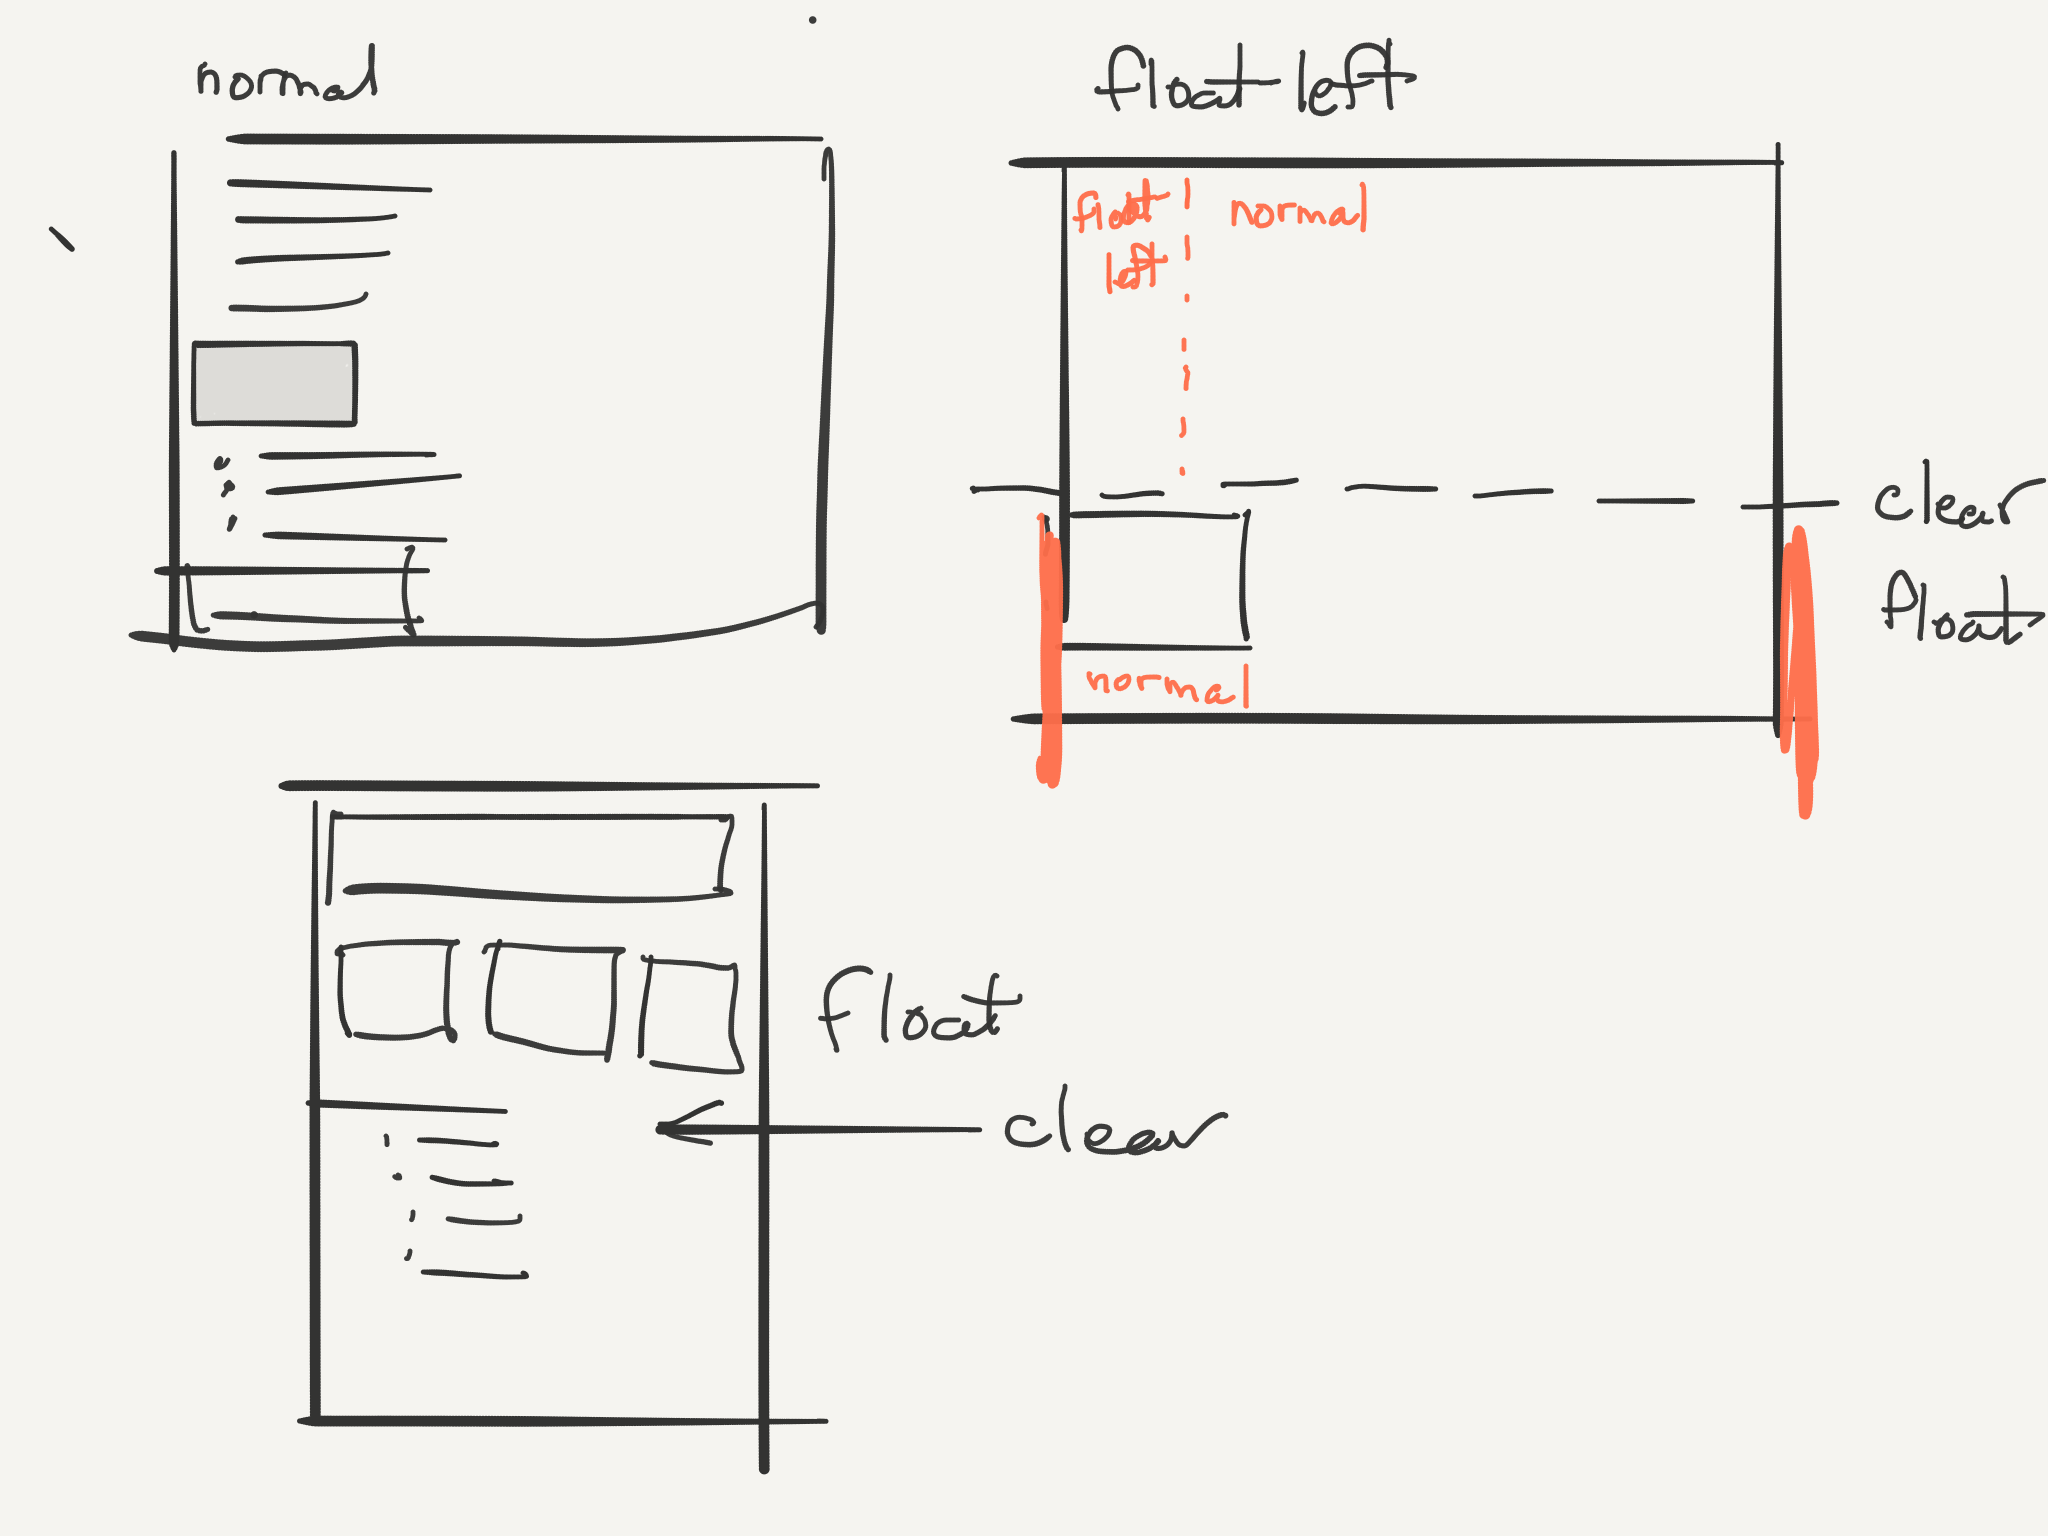 normal
float left
float
left
normal
clear
float
normal
float
clear